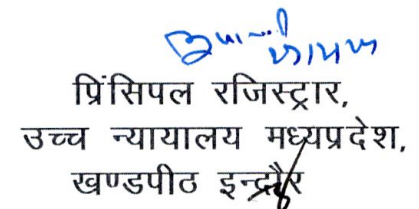 प्रिंसिपल रजिस्ट्रार,
उच्च न्यायालय मध्यप्रदेश,
खण्डपीठ इन्द्रौर